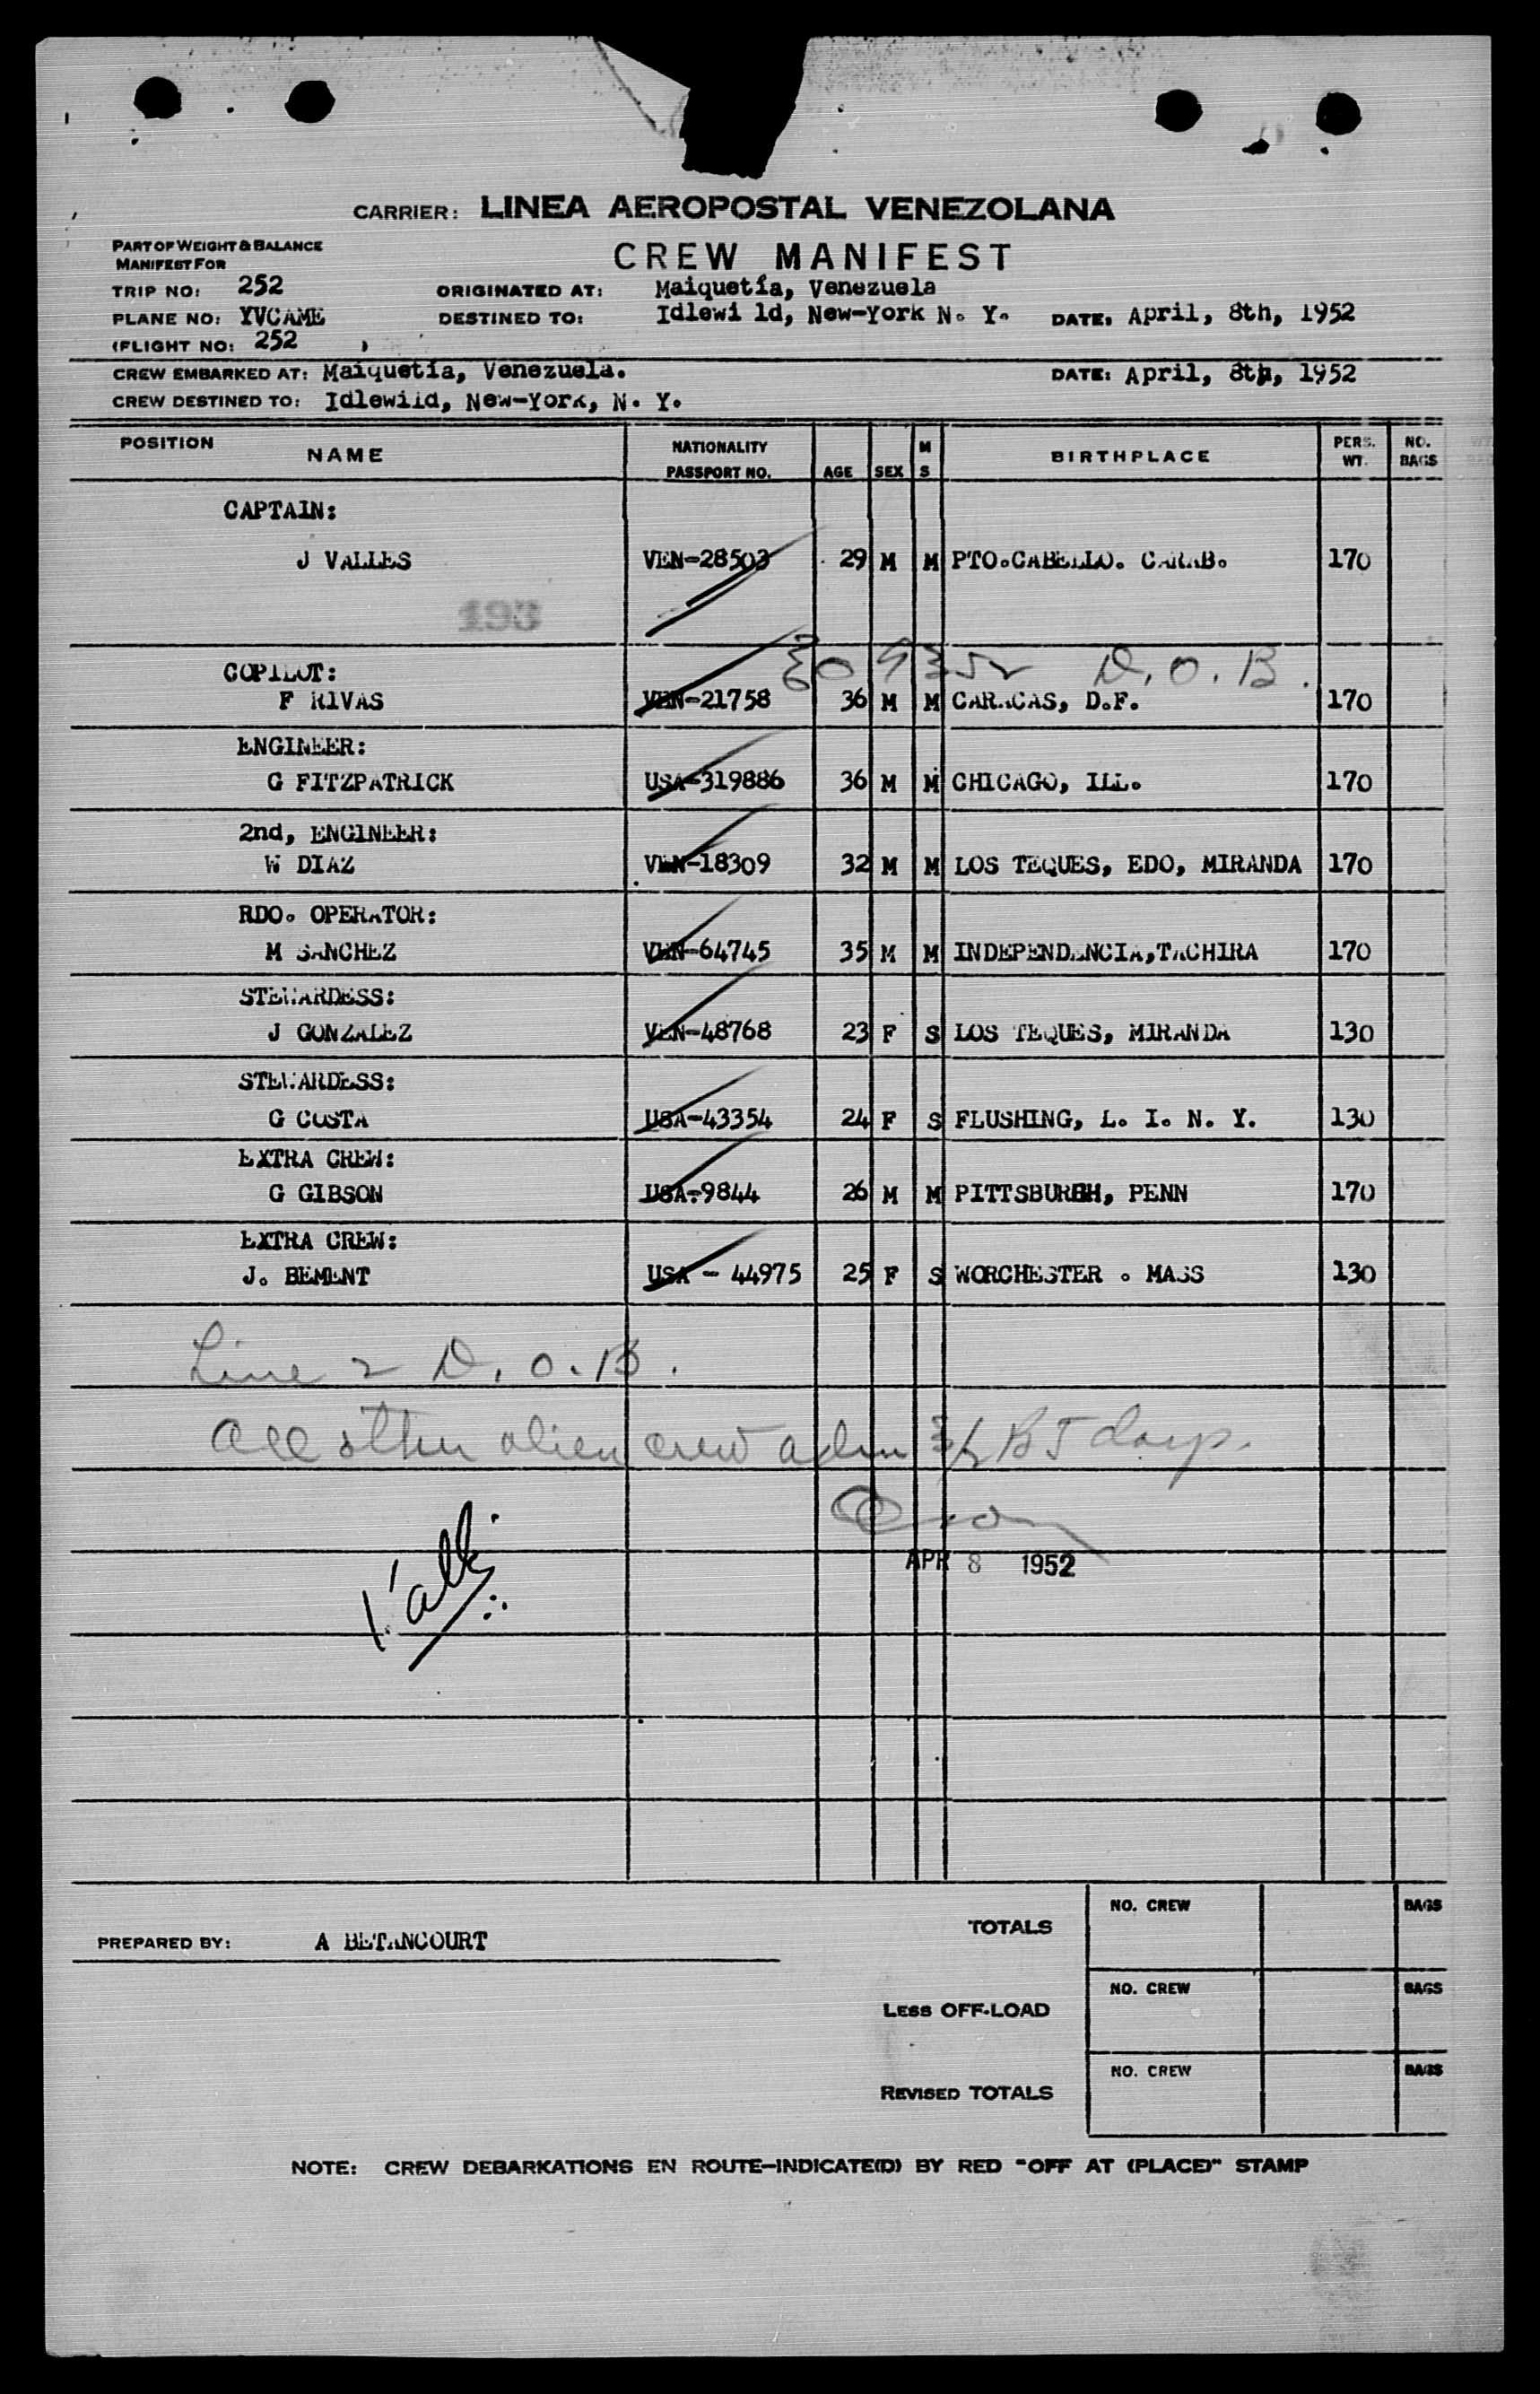 CARRIER: LINEA AEROPOSTAL VENEZOLANA
PART OF WEIGHT & BALANCE
MANIFEST FOR
CREW MANIFEST
TRIP NO: 252 ORIGINATED AT: Maiquetía, Venezuela
PLANE NO: YVCAME DESTINED TO: Idlewi ld, New-York N. Y. DATE. April, 8th, 1952
(FLIGHT NO: 252 )
CREW EMBARKED AT: Maiquetía, Venezuela. DATE: April, 8th, 1952
CREW DESTINED TO: Idlewild, New-York, N. Y.
POSITION NAME NATIONALITY PASSPORT NO. AGE SEX M S BIRTHPLACE PERS. WT. NO. BAGS
CAPTAIN:
J VALLES VEN-28503 29 M M PTO.CABELLO. CARAB. 170
193
D. O. B.
COPILOT:
F RIVAS VEN-21758 36 M M CARACAS, D.F. 170
ENGINEER:
G FITZPATRICK USA-319886 36 M M CHICAGO, ILL. 170
2nd, ENGINEER:
W DIAZ VEN-18309 32 M M LOS TEQUES, EDO, MIRANDA 170
RDO. OPERATOR:
M SANCHEZ VEN-64745 35 M M INDEPENDENCIA,TACHIRA 170
STEWARDESS:
J GONZALEZ VEN-48768 23 F S LOS TEQUES, MIRANDA 130
STEWARDESS:
G COSTA USA-43354 24 F S FLUSHING, L. I. N. Y. 130
EXTRA CREW:
G GIBSON USA-9844 26 M M PITTSBURGH, PENN 170
EXTRA CREW:
J. BEMENT USA - 44975 25 F S WORCHESTER . MASS 130
Line 2 D. O. B.
All other alien crew adm
APR 8 1952
Valles
PREPARED BY: A BETANCOURT
TOTALS NO. CREW BAGS
LESS OFF-LOAD NO. CREW BAGS
REVISED TOTALS NO. CREW BAGS
NOTE: CREW DEBARKATIONS EN ROUTE-INDICATE(D) BY RED "OFF AT (PLACE)" STAMP